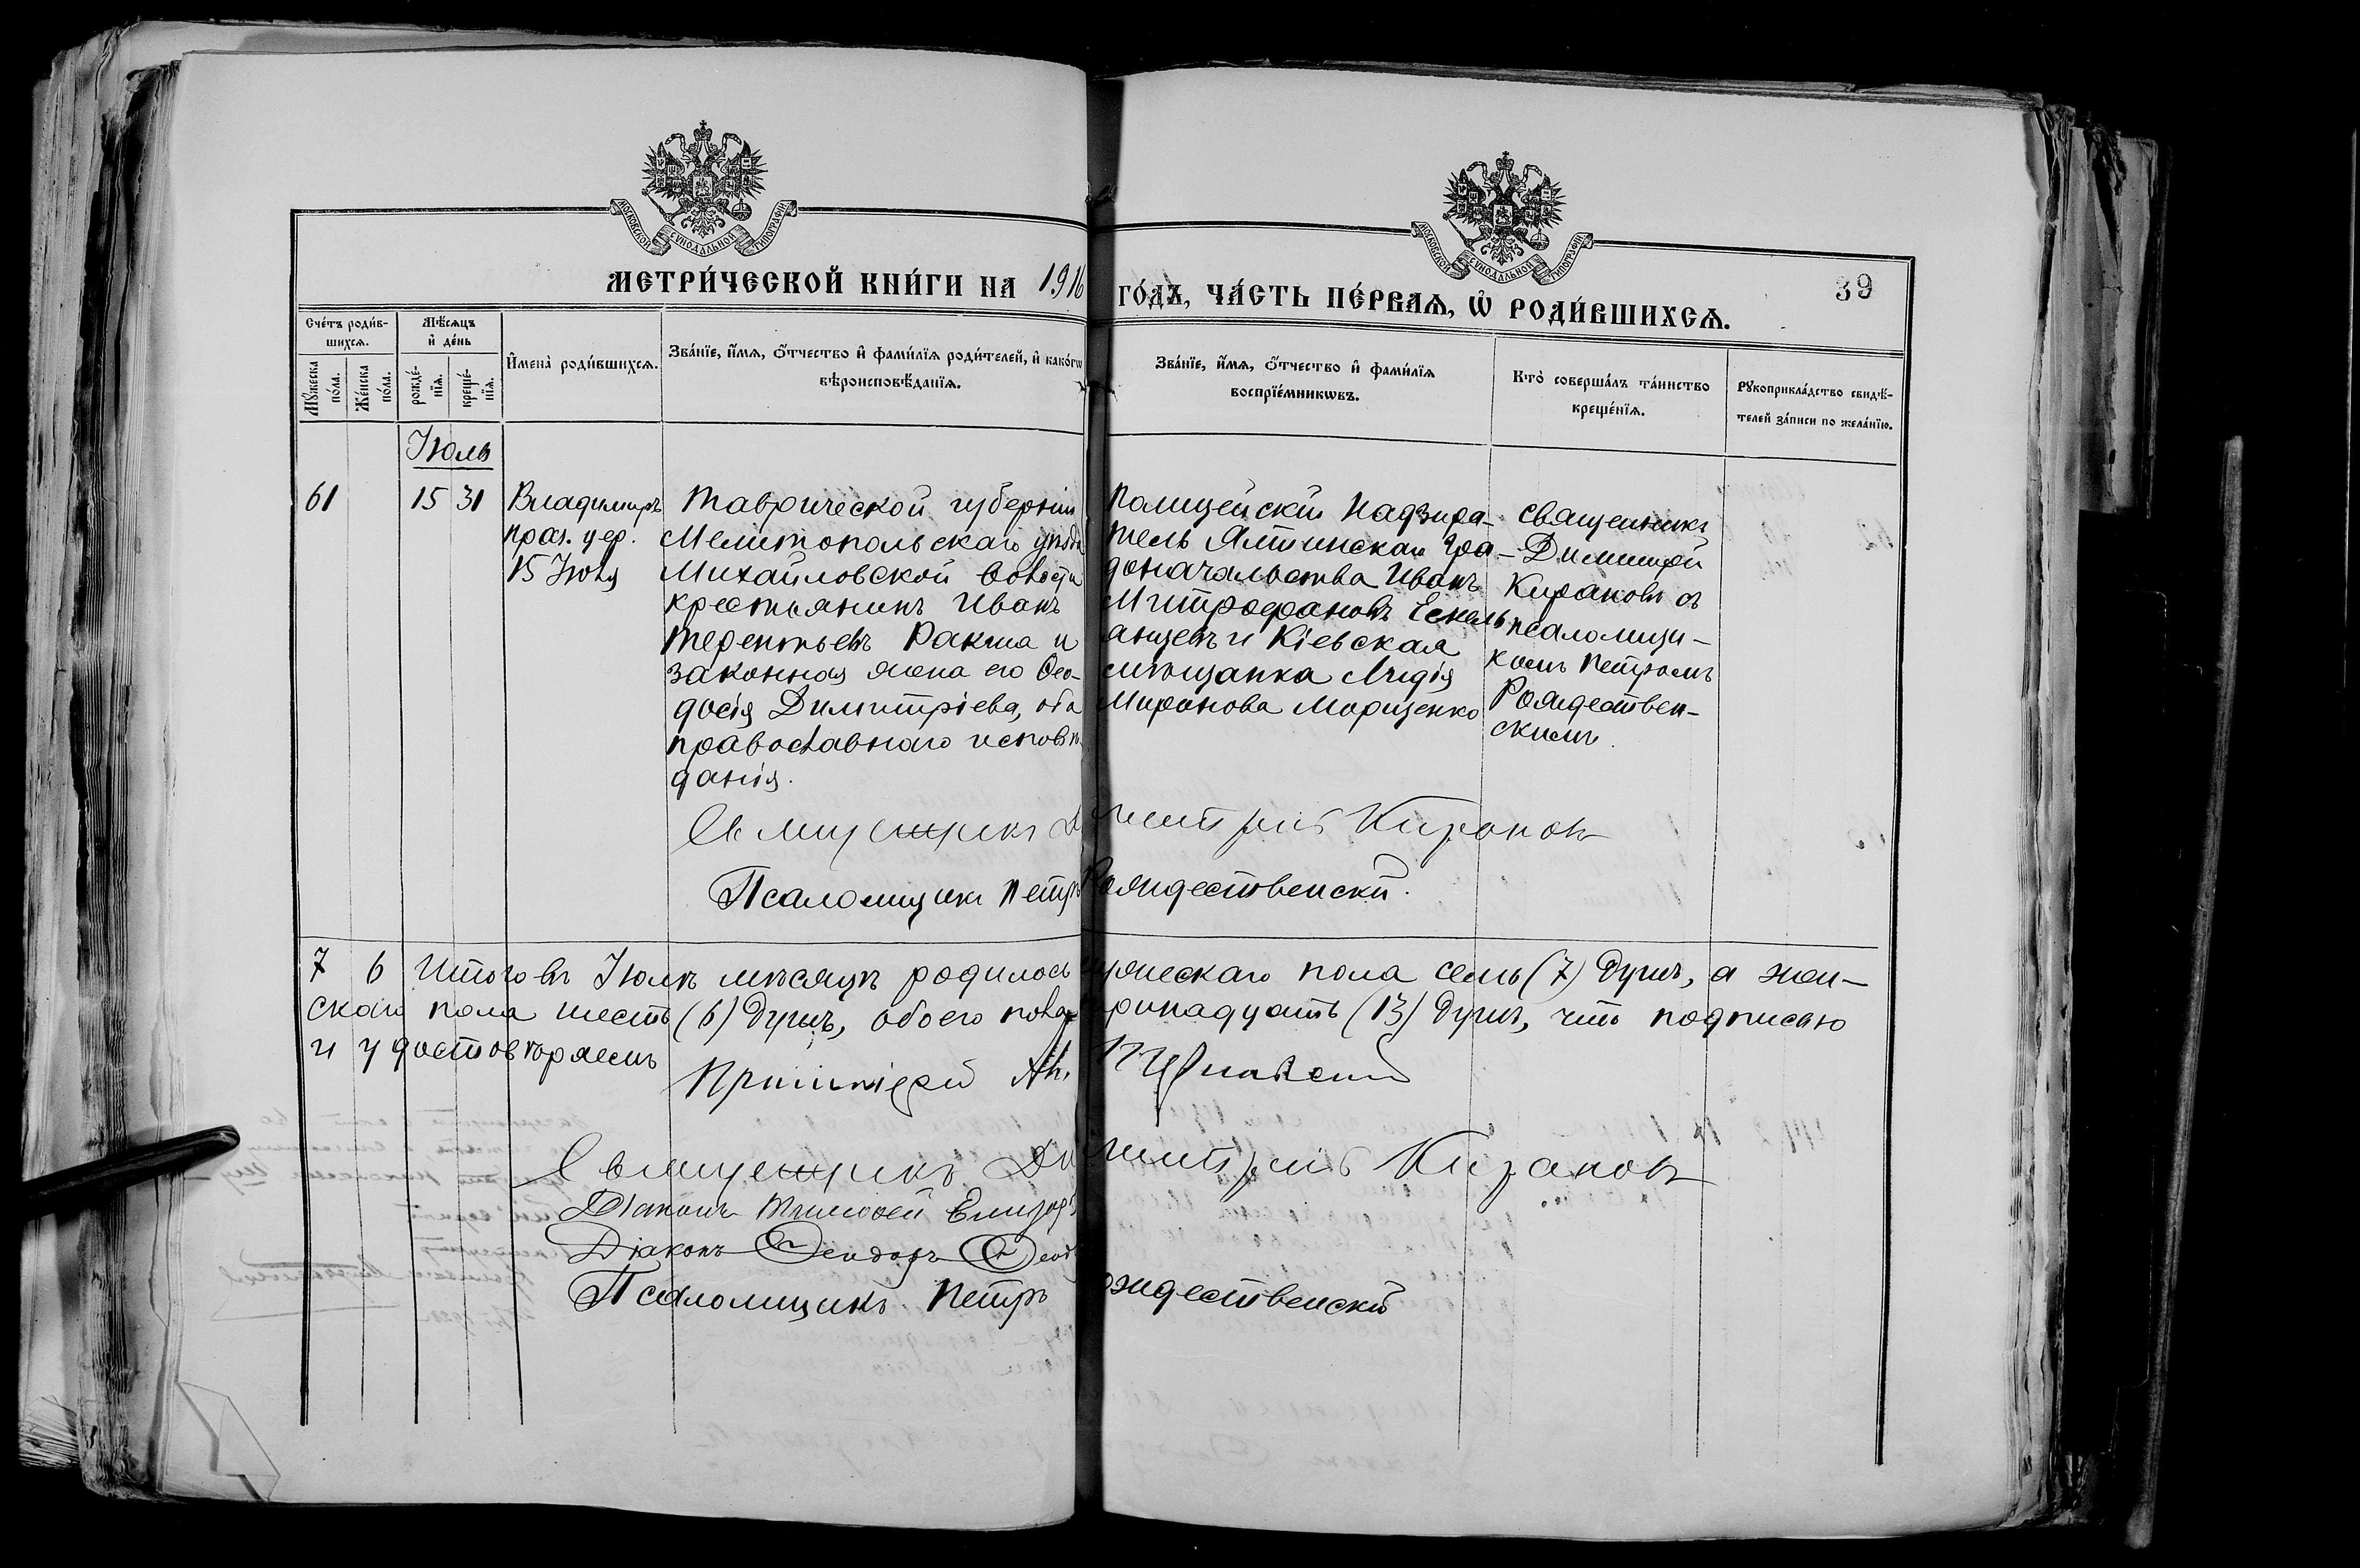 МОСКОВСКОЙ СѴНОДАЛЬНОЙ ТИПОГРАФІИ
МОСКОВСКОЙ СѴНОДАЛЬНОЙ ТИПОГРАФІИ
МЕТРИ́ЧЕСКОЙ КНИ́ГИ НА 1916 ГО́ДЪ, ЧА́СТЬ ПЕ́РВАѦ, Ѽ РОДИ́ВШИХСѦ.
39
Сче́тъ роди́в-
шихсѧ.
Мѣ́сѧцъ
и҆ де́нь
Мꙋ́жеска
по́ла.
Же́нска
по́ла.
рожде́-
нїѧ.
креще́-
нїѧ.
И҆мена̀ роди́вшихсѧ.
Зва́нїе, и҆́мѧ, ѻ҆́тчество и҆ фами́лїѧ роди́телей, и҆ како́гѡ
вѣроисповѣ́данїѧ.
Зва́нїе, и҆́мѧ, ѻ҆́тчество и҆ фами́лїѧ
воспрїе́мникѡвъ.
Кто̀ соверша́лъ та́инство
креще́нїѧ.
Рꙋкоприкла́дство свидѣ́-
телей за́писи по жела́нїю.
Іюль
61 15 31
Владимиръ
праз. цер.
15 Іюля
Таврической губерніи
Мелитопольскаго уѣзда
Михайловской волости
крестьянинъ Иванъ
Терентьевъ Ракша и
законная жена его Ѳео-
досія Димитріева, оба
православнаго исповѣ-
данія.
Полицейскій Надзира-
тель Ялтинскаго Гра-
доначальства Иванъ
Митрофановъ
и Кіевская
мѣщанка Лидія
Миронова Морценко
Священникъ
Димитрій
Кираковъ съ
псаломщи-
комъ Петромъ
Рождествен-
скимъ.
Священникъ Димитрій Кираковъ
Псаломщикъ Петръ Рождественскій.
7 6 Итого въ Іюлѣ мѣсяцѣ родилось мужескаго пола семь (7) душъ, а жен-
скаго пола шесть (6) душъ, обоего пола тринадцать (13) душъ, что подписью
и удостовѣряемъ
Протоіерей
Священникъ Димитрій Кираковъ
Діаконъ Тимофей
Діаконъ Ѳеодоръ
Псаломщикъ Петръ Рождественскій